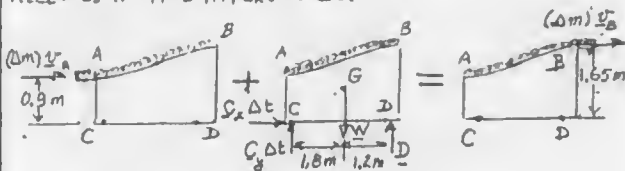 (Δm) v_A
A
B
0,9 m
C
D
+
A
B
G
C_x Δt
C
D
C_y Δt
W
D
1,8m
1,2m
=
(Δm) v_B
A
B
1,65m
C
D